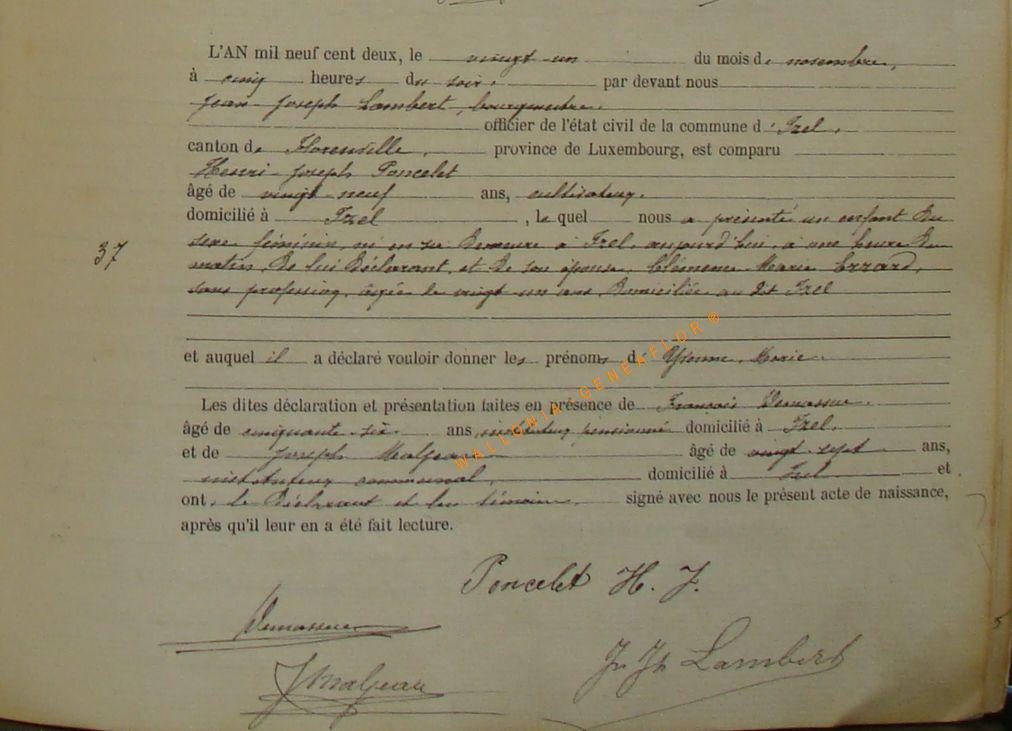 L'AN mil neuf cent deux, le vingt-un du mois de novembre,
à cinq heures du soir, par devant nous
Jean Joseph Lambert, bourgmestre,
officier de l'état civil de la commune d'Izel,
canton de Florenville, province de Luxembourg, est comparu
Henri Joseph Poncelet
âgé de vingt-neuf ans, cultivateur,
domicilié à Izel, lequel nous a présenté un enfant du
sexe féminin, né en sa demeure à Izel, aujourd'hui, à une heure du
matin, de lui déclarant, et de son épouse, Clémence Marie
sans profession, âgée de vingt-un ans, domiciliée au dit Izel
37
et auquel il a déclaré vouloir donner les prénoms d' Yvonne Marie.
Les dites déclaration et présentation faites en présence de François
âgé de cinquante-six ans, instituteur pensionné domicilié à Izel,
et de Joseph Maljean âgé de vingt-sept ans,
instituteur communal, domicilié à Izel et
ont, le déclarant et les témoins, signé avec nous le présent acte de naissance,
après qu'il leur en a été fait lecture.
WALLONIA-GENEAFLOR®
Poncelet H. J.
J Maljean
Jn Jh Lambert